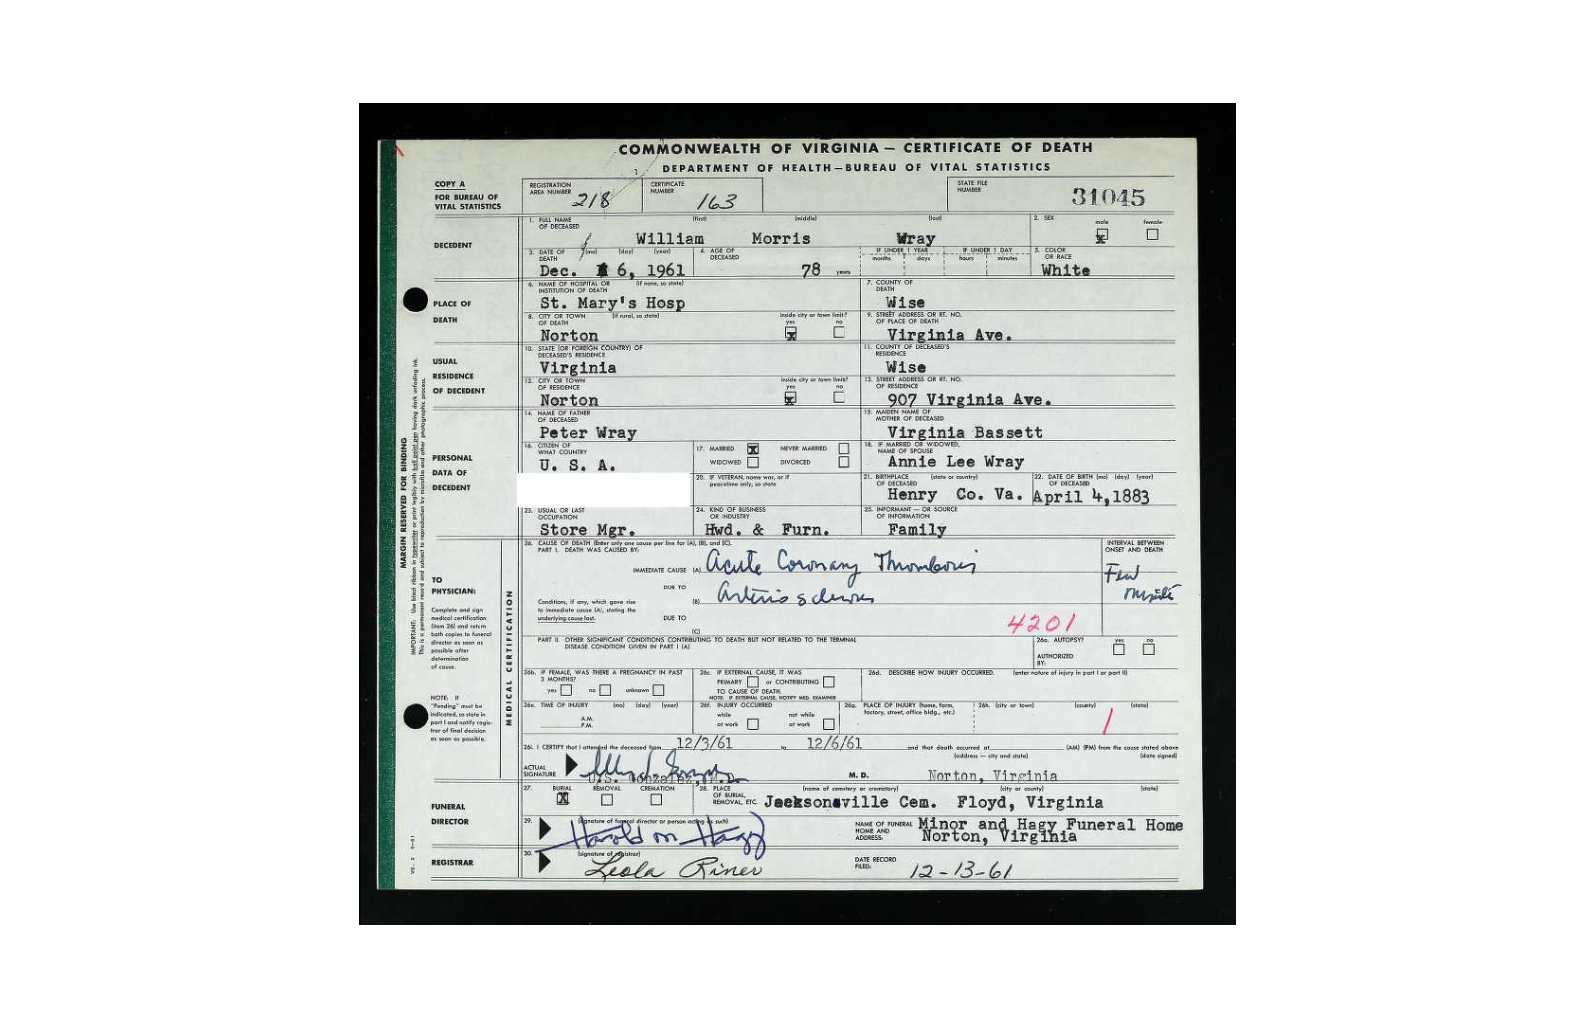 COMMONWEALTH OF VIRGINIA — CERTIFICATE OF DEATH
DEPARTMENT OF HEALTH—BUREAU OF VITAL STATISTICS
COPY A
FOR BUREAU OF
VITAL STATISTICS
REGISTRATION
AREA NUMBER 218
CERTIFICATE
NUMBER 163
STATE FILE
NUMBER 31045
DECEDENT
1. FULL NAME
OF DECEASED
(first) (middle) (last)
William Morris Wray
2. SEX
male female
x
3. DATE OF
DEATH
(mo) (day) (year)
Dec. 6, 1961
4. AGE OF
DECEASED
78 years
IF UNDER 1 YEAR
months days
IF UNDER 1 DAY
hours minutes
5. COLOR
OR RACE
White
PLACE OF
DEATH
6. NAME OF HOSPITAL OR
INSTITUTION OF DEATH
(if none, so state)
St. Mary's Hosp
7. COUNTY OF
DEATH
Wise
8. CITY OR TOWN
OF DEATH
(if rural, so state)
Norton
inside city or town limit?
yes no
x
9. STREET ADDRESS OR RT. NO.
OF PLACE OF DEATH
Virginia Ave.
USUAL
RESIDENCE
OF DECEDENT
10. STATE (OR FOREIGN COUNTRY) OF
DECEASED'S RESIDENCE
Virginia
11. COUNTY OF DECEASED'S
RESIDENCE
Wise
12. CITY OR TOWN
OF RESIDENCE
Norton
inside city or town limit?
yes no
x
13. STREET ADDRESS OR RT. NO.
OF RESIDENCE
907 Virginia Ave.
PERSONAL
DATA OF
DECEDENT
14. NAME OF FATHER
OF DECEASED
Peter Wray
15. MAIDEN NAME OF
MOTHER OF DECEASED
Virginia Bassett
16. CITIZEN OF
WHAT COUNTRY
U. S. A.
17. MARRIED x NEVER MARRIED
WIDOWED DIVORCED
18. IF MARRIED OR WIDOWED,
NAME OF SPOUSE
Annie Lee Wray
20. IF VETERAN, name war, or if
peacetime only, so state
21. BIRTHPLACE (state or country)
OF DECEASED
Henry Co. Va.
22. DATE OF BIRTH (mo) (day) (year)
OF DECEASED
April 4,1883
23. USUAL OR LAST
OCCUPATION
Store Mgr.
24. KIND OF BUSINESS
OR INDUSTRY
Hwd. & Furn.
25. INFORMANT — OR SOURCE
OF INFORMATION
Family
MARGIN RESERVED FOR BINDING
TO
PHYSICIAN:
Complete and sign
medical certification
(item 26) and return
both copies to funeral
director as soon as
possible after
determination
of cause.
NOTE: If
"Pending" must be
indicated, so state in
part I and notify regis-
trar of final decision
as soon as possible.
MEDICAL CERTIFICATION
26. CAUSE OF DEATH (Enter only one cause per line for (A), (B), and (C).
PART I. DEATH WAS CAUSED BY:
IMMEDIATE CAUSE (A) Acute Coronary Thrombosis
INTERVAL BETWEEN
ONSET AND DEATH
Few
DUE TO
(B) Arteriosclerosis
Conditions, if any, which gave rise
to immediate cause (A), stating the
underlying cause last.
DUE TO
(C)
4201
PART II. OTHER SIGNIFICANT CONDITIONS CONTRIBUTING TO DEATH BUT NOT RELATED TO THE TERMINAL
DISEASE CONDITION GIVEN IN PART I (A)
26a. AUTOPSY? yes no
AUTHORIZED
BY:
26b. IF FEMALE, WAS THERE A PREGNANCY IN PAST
3 MONTHS?
yes no unknown
26c. IF EXTERNAL CAUSE, IT WAS
PRIMARY or CONTRIBUTING
TO CAUSE OF DEATH.
NOTE: IF EXTERNAL CAUSE, NOTIFY MED. EXAMINER
26d. DESCRIBE HOW INJURY OCCURRED. (enter nature of injury in part I or part II)
26e. TIME OF INJURY (mo) (day) (year)
A.M.
P.M.
26f. INJURY OCCURRED
while not while
at work at work
26g. PLACE OF INJURY (home, farm,
factory, street, office bldg., etc.)
26h. (city or town) (county) (state)
26i. I CERTIFY that I attended the deceased from 12/3/61 to 12/6/61 and that death occurred at (AM) (PM) from the cause stated above
(address — city and state) (date signed)
ACTUAL
SIGNATURE
U.S. Gonzalez, M.D.
M. D.
Norton, Virginia
FUNERAL
DIRECTOR
27. BURIAL REMOVAL CREMATION
x
28. PLACE
OF BURIAL,
REMOVAL, ETC.
(name of cemetery or crematory) (city or county) (state)
Jacksonville Cem. Floyd, Virginia
29.
(signature of funeral director or person acting as such)
Harold M Hagy
NAME OF FUNERAL
HOME AND
ADDRESS:
Minor and Hagy Funeral Home
Norton, Virginia
REGISTRAR
30.
(signature of registrar)
Leola Riner
DATE RECORD
FILED:
12-13-61